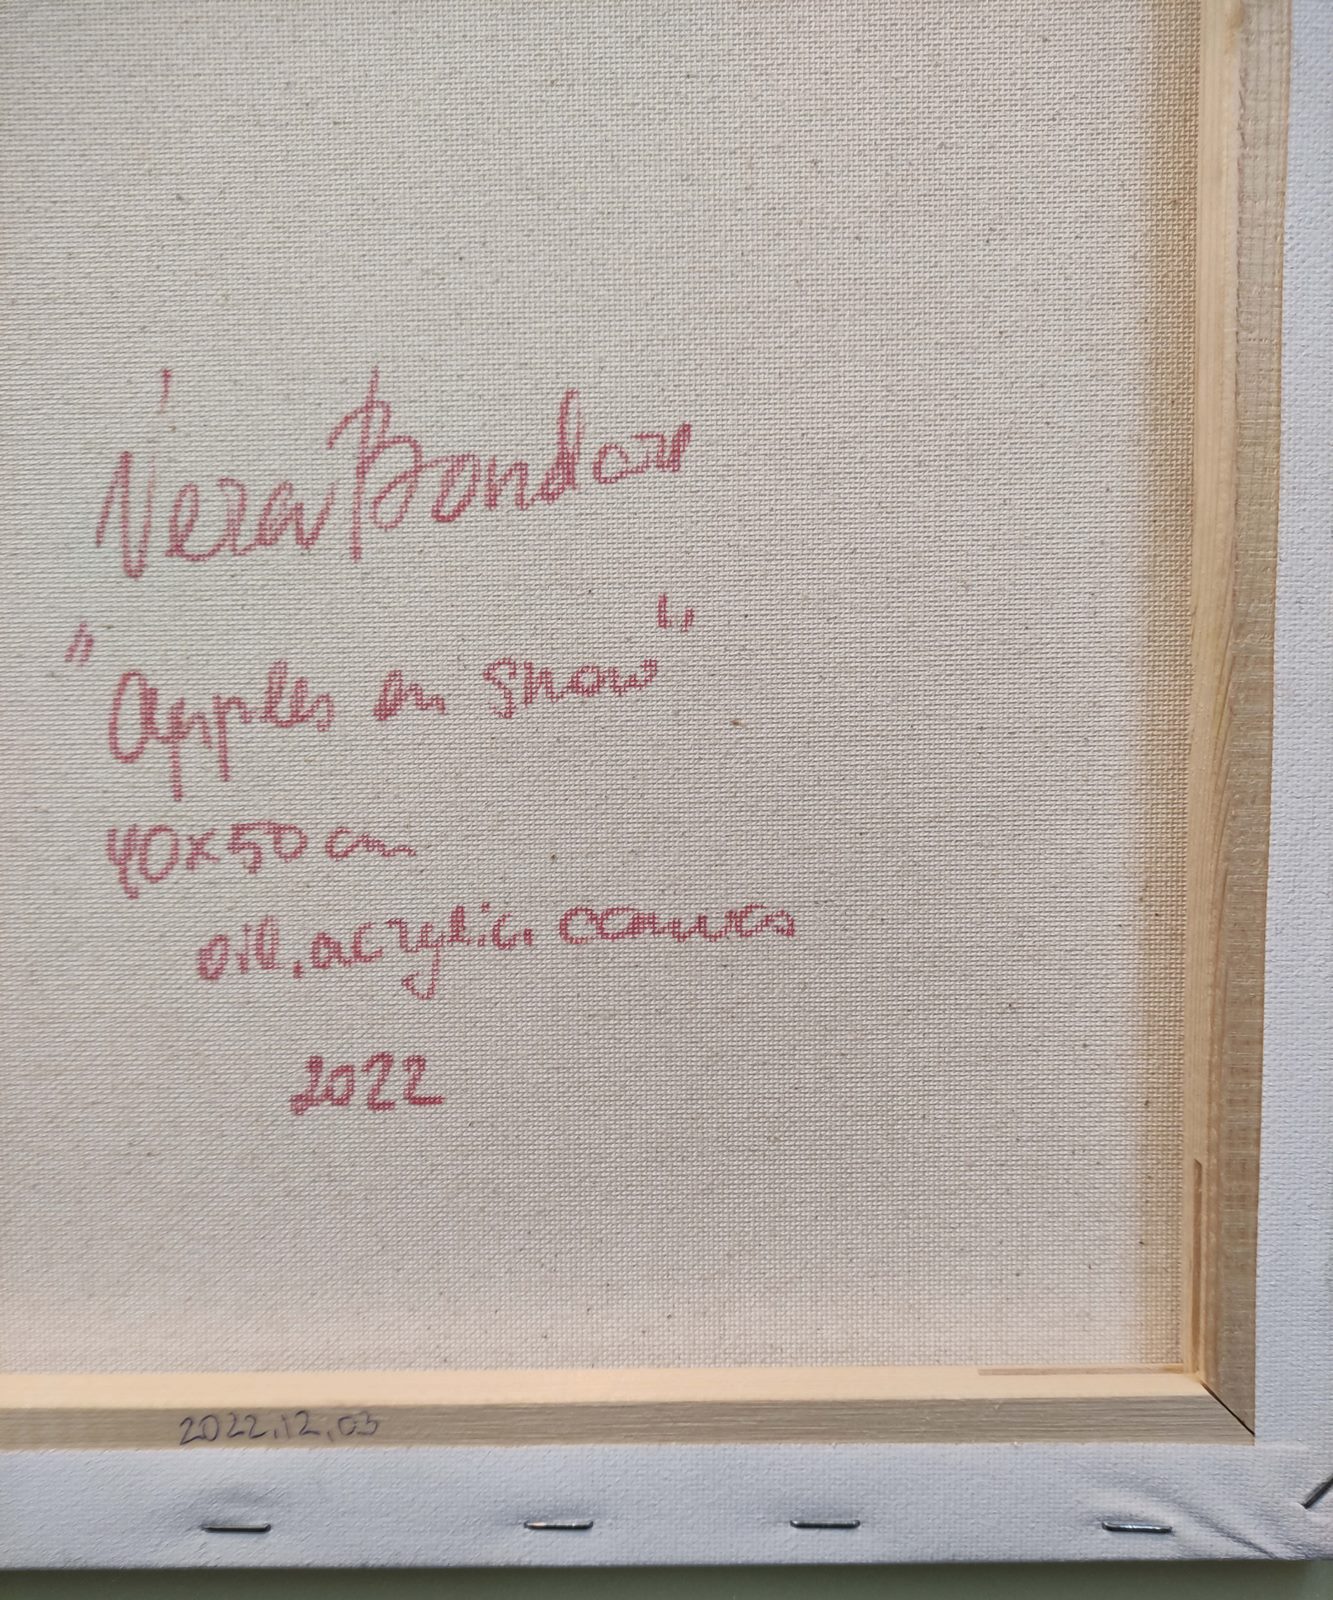 Vera Bondar
"Apples on snow"
40x50 cm
oil, acrylic, canvas
2022
2022.12.03